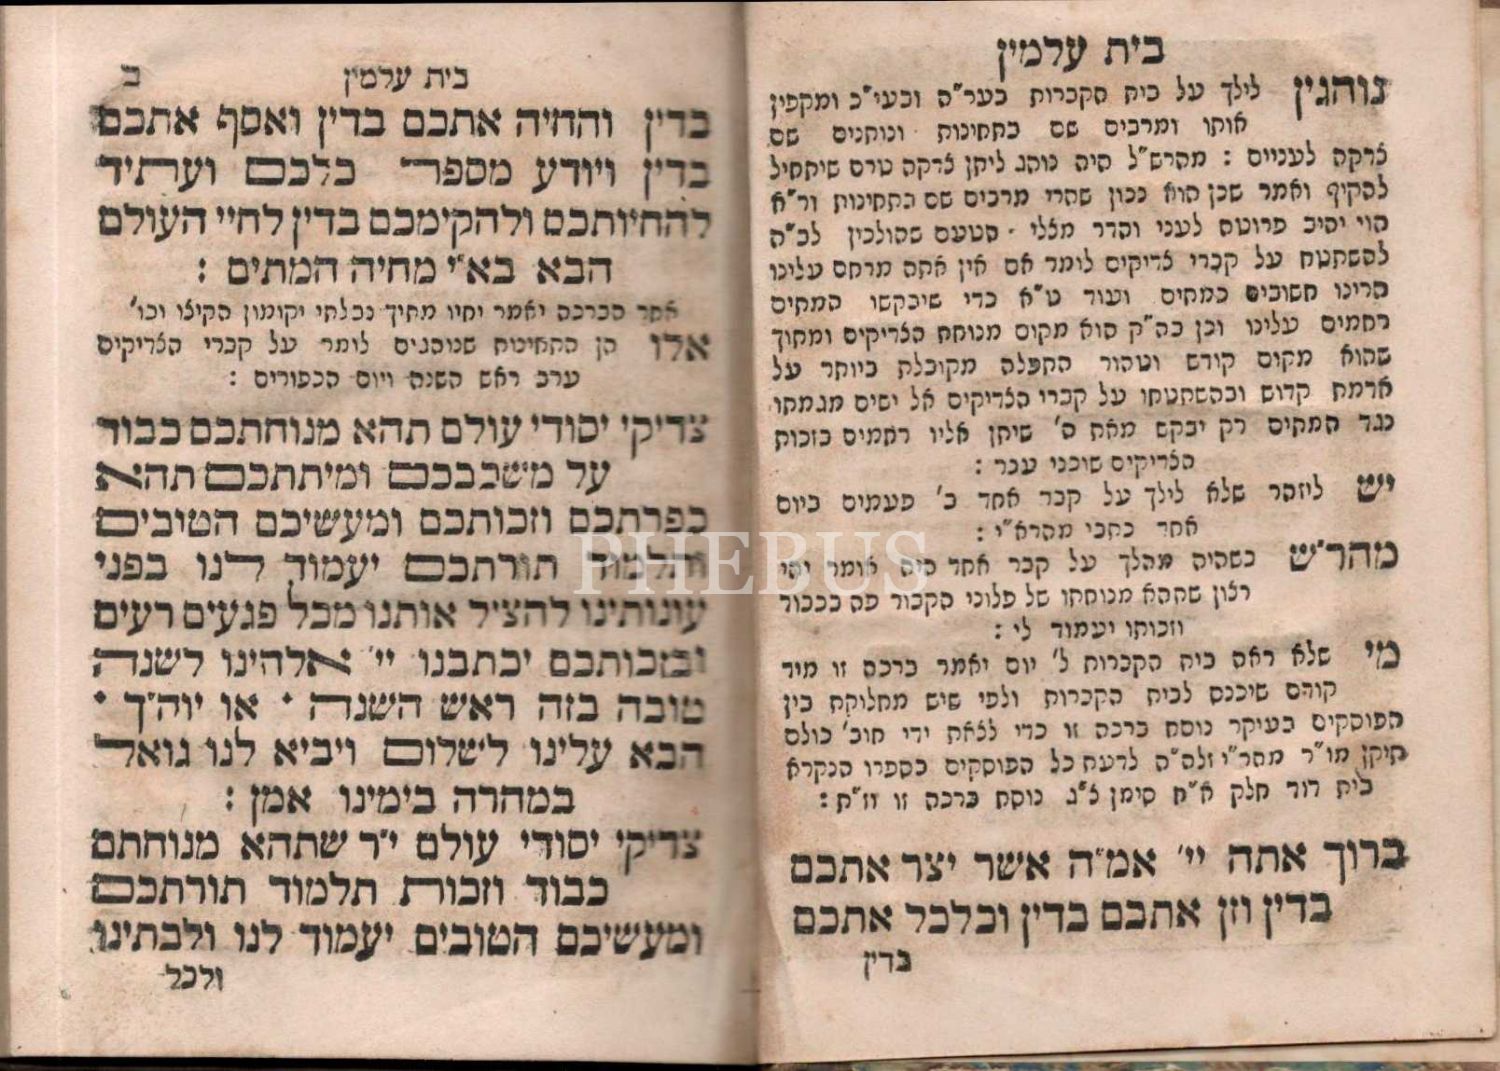 בית עלמין
נוהגין לילך על בית הקברות בער"ה ובעי"כ ומקפין
אותו ומרבים שם בתחינות ונותנים שם
צדקה לעניים : מהרש"ל היה נוהג ליתן צדקה טרם שיתחיל
להקיף ואמר שכן הוא נכון שהרי מרבים שם בתחינות ור"א
הוי יהיב פרוטה לעני והדר מצלי . הטעם שהולכין לב"ה
להשתטח על קברי צדיקים לומר אם אין אתה מרחם עלינו
הרינו חשובים כמתים ועוד ט"א כדי שיבקשו המתים
רחמים עלינו וכן בה"ק הוא מקום מנוחת הצדיקים ומתוך
שהוא מקום קודש וטהור התפלה מקובלת ביותר על
אדמת קדוש ובהשתטחו על קברי הצדיקים אל ישים מגמתו
נגד המתים רק יבקש מאת ה' שיתן אליו רחמים בזכות
הצדיקים שוכני עפר :
יש ליזהר שלא לילך על קבר אחד ב' פעמים ביום
אחד כתבי מהרא"י :
מהר"ש כשהיה מהלך על קבר אחד היה אומר יהי
רצון שתהא מנוחתו של פלוני הקבור פה בכבוד
וזכותו יעמוד לי :
מי שלא ראה בית הקברות ל' יום יאמר ברכה זו מיד
קודם שיכנס לבית הקברות ולפי שיש מחלוקת בין
הפוסקים בעיקר נוסח ברכה זו כדי לצאת ידי חוב' כולם
תיקן מו"ר מהר"י זלה"ה לדעת כל הפוסקים בספרו הנקרא
בית דוד חלק א"ח סימן נוסח ברכה זו וז"ה :
ברוך אתה יי' אמ"ה אשר יצר אתכם
בדין וזן אתכם בדין וכלכל אתכם
בדין
בית עלמין ב
בדין והחיה אתכם בדין ואסף אתכם
בדין ויודע מספר כלכם ועתיד
להחיותכם ולהקימכם בדין לחיי העולם
הבא בא"י מחיה המתים :
אחר הברכה יאמר יחיו מתיך נבלתי יקומון הקיצו וכו'
אלו הן התחינות שנוהגים לומר על קברי הצדיקים
ערב ראש השנה ויום הכפורים :
צדיקי יסודי עולם תהא מנוחתכם כבוד
על משכבכם ומיתתכם תהא
כפרתכם וזכותכם ומעשיכם הטובים
ותלמוד תורתכם יעמוד לנו בפני
עונותינו להציל אותנו מכל פגעים רעים
ובזכותכם יכתבנו יי' אלהינו לשנה
טובה בזה ראש השנה . או יוה"ך .
הבא עלינו לשלום ויביא לנו גואל
במהרה בימינו אמן :
צדיקי יסודי עולם י"ר שתהא מנוחתם
כבוד וזכות תלמוד תורתכם
ומעשיכם הטובים יעמוד לנו ולבתינו
ולכל
PHEBUS